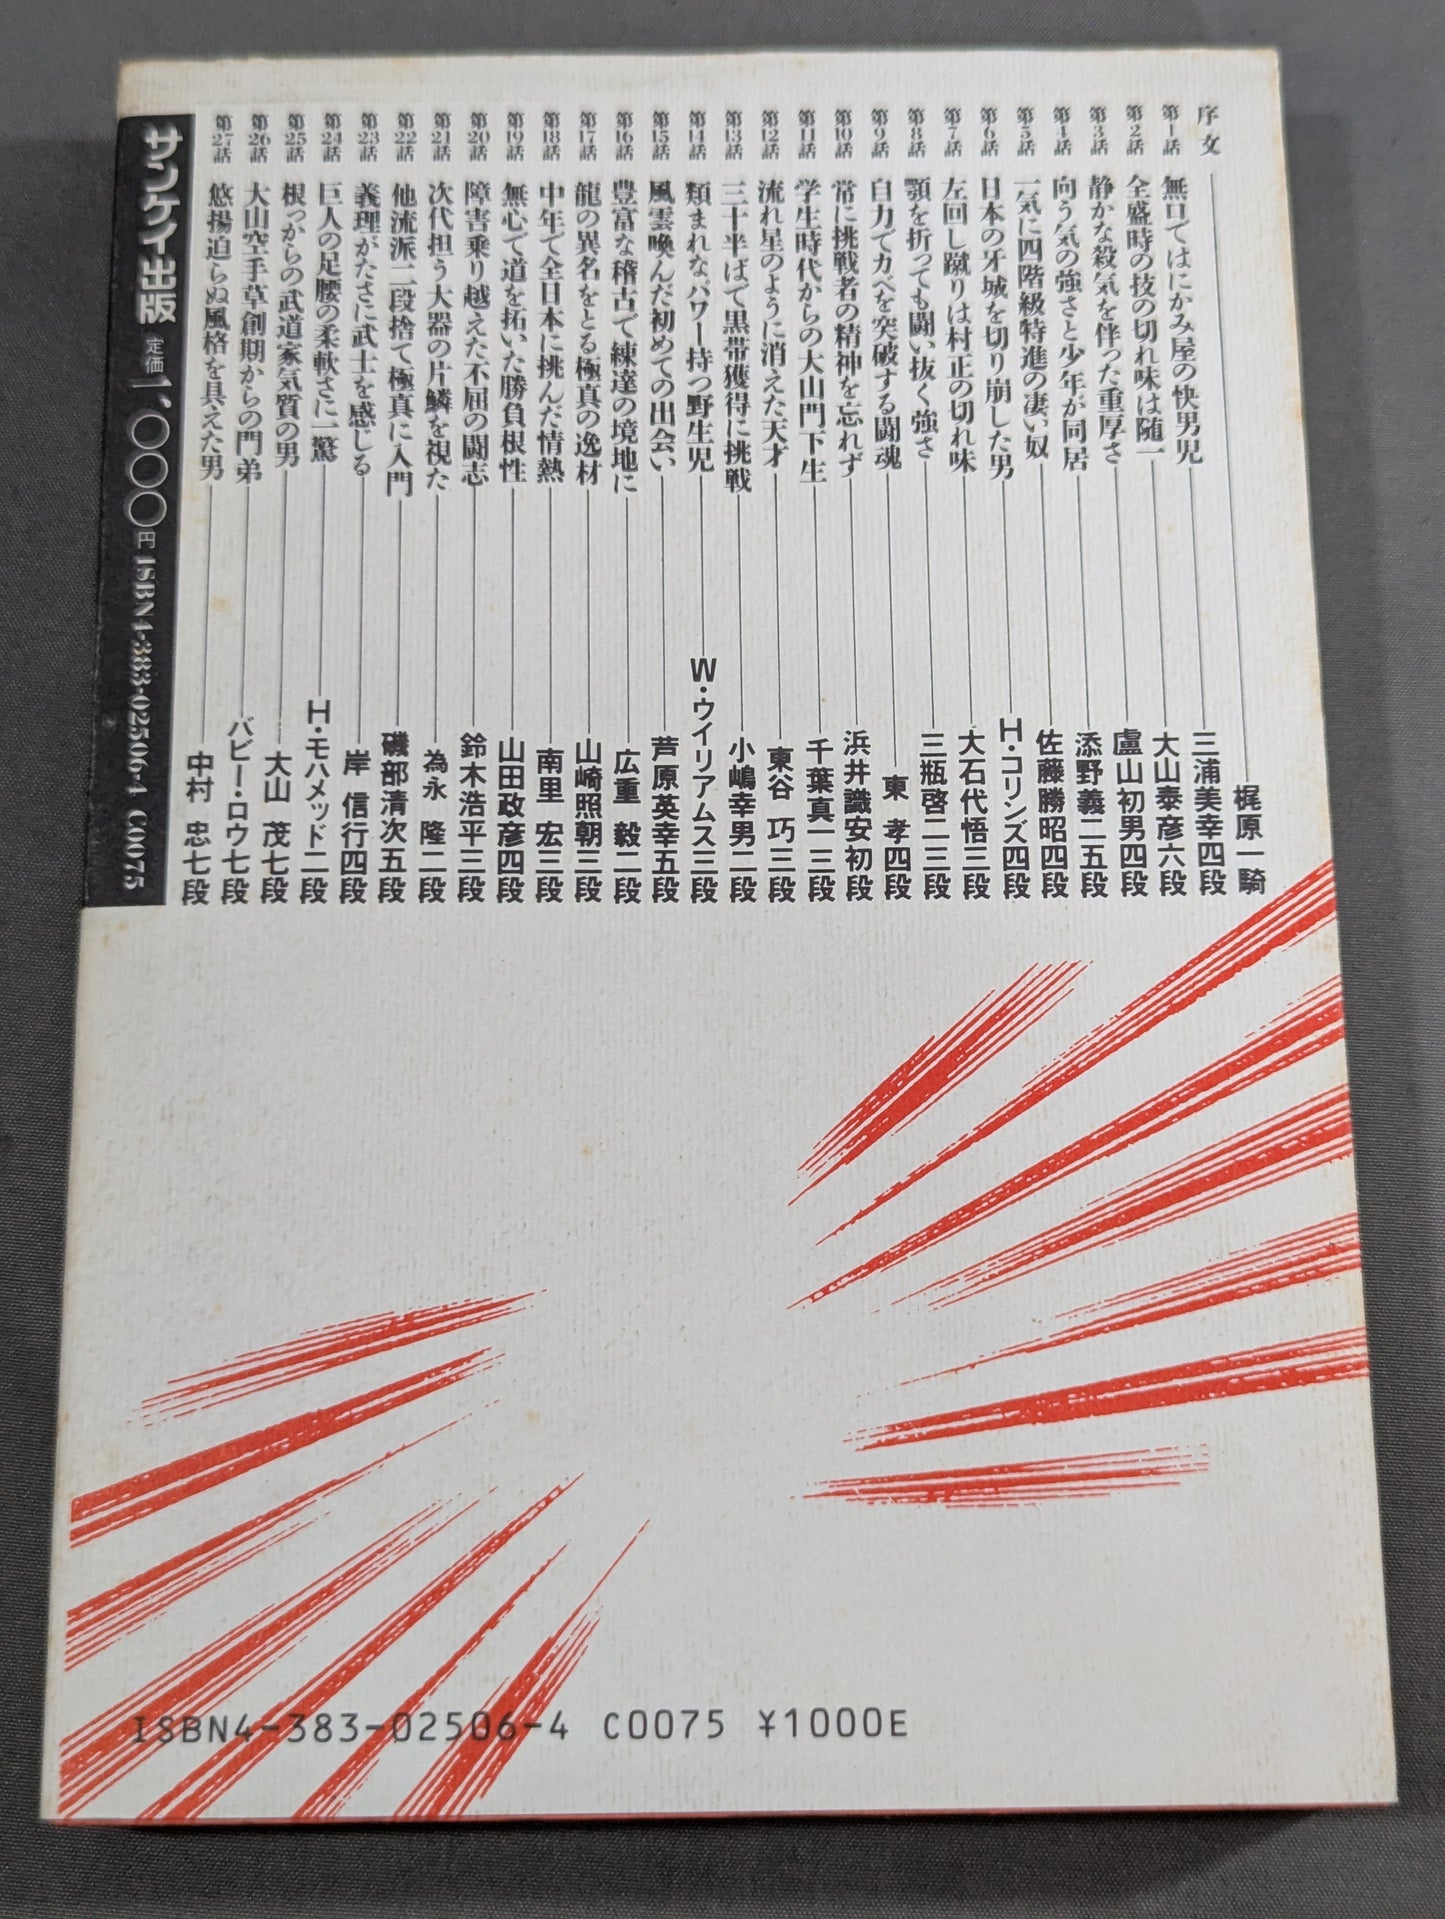 序文 梶原一騎
第1話 無口ではにかみ屋の快男児 三浦美幸四段
第2話 全盛時の技の切れ味は随一 大山泰彦六段
第3話 静かな殺気を伴った重厚さ 盧山初男四段
第4話 向う気の強さと少年が同居 添野義二五段
第5話 一気に四階級特進の凄い奴 佐藤勝昭四段
第6話 日本の牙城を切り崩した男 H・コリンズ四段
第7話 左回し蹴りは村正の切れ味 大石代悟三段
第8話 顎を折っても闘い抜く強さ 三瓶啓二三段
第9話 自力でカベを突破する闘魂 東 孝四段
第10話 常に挑戦者の精神を忘れず 浜井識安初段
第11話 学生時代からの大山門下生 千葉真一三段
第12話 流れ星のように消えた天才 東谷 巧三段
第13話 三十半ばで黒帯獲得に挑戦 小嶋幸男二段
第14話 類まれなパワー持つ野生児 W・ウイリアムス三段
第15話 風雲喚んだ初めての出会い 芦原英幸五段
第16話 豊富な稽古で練達の境地に 広重 毅二段
第17話 龍の異名をとる極真の逸材 山崎照朝三段
第18話 中年で全日本に挑んだ情熱 南里 宏三段
第19話 無心で道を拓いた勝負根性 山田政彦四段
第20話 障害乗り越えた不屈の闘志 鈴木浩平三段
第21話 次代担う大器の片鱗を視た 為永 隆二段
第22話 他流派二段捨て極真に入門 磯部清次五段
第23話 義理がたさに武士を感じる 岸 信行四段
第24話 巨人の足腰の柔軟さに一驚 H・モハメッド二段
第25話 根っからの武道家気質の男 大山 茂七段
第26話 大山空手草創期からの門弟 バビー・ロウ七段
第27話 悠揚迫らぬ風格を具えた男 中村 忠七段
サンケイ出版 定価一、〇〇〇円 ISBN4-383-02506-4 C0075
ISBN4-383-02506-4 C0075 ¥1000E